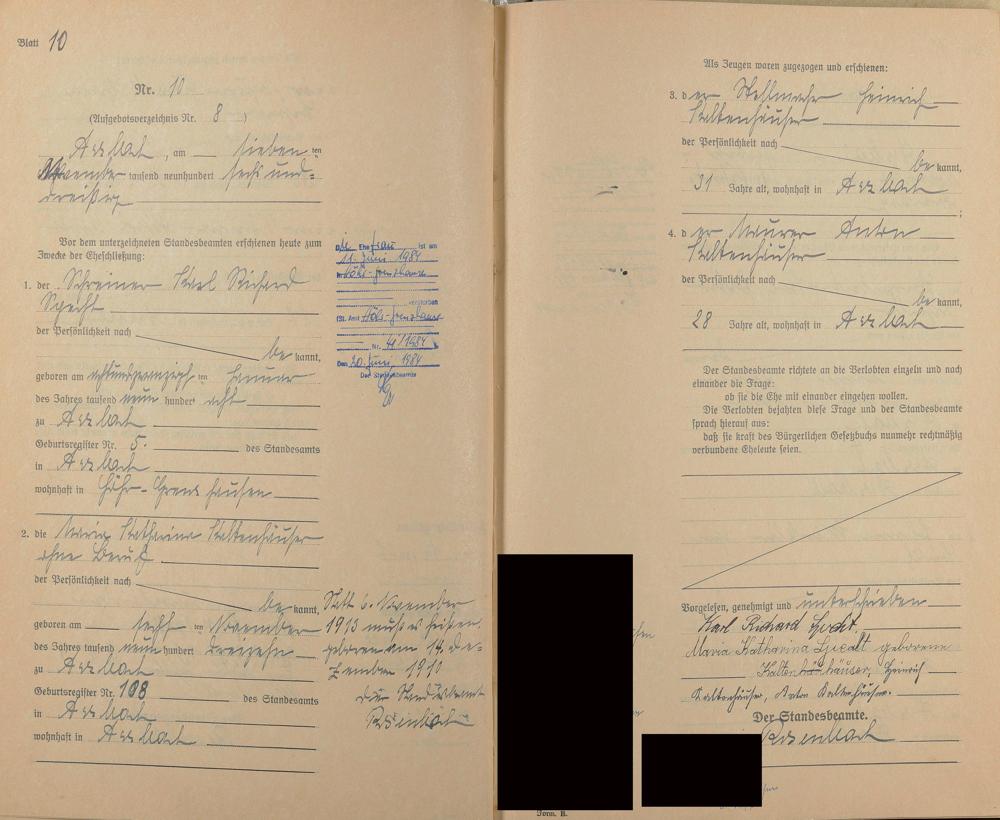 Blatt 10
Nr. 10
(Aufgebotsverzeichnis Nr. 8)
Arzbach, am sieben ten
November tausend neunhundert sechs und-
dreißig
Vor dem unterzeichneten Standesbeamten erschienen heute zum
Zwecke der Eheschließung:
1. der Schreiner Karl Richard
Specht
der Persönlichkeit nach
be kannt,
geboren am achtundzwanzigsten Januar
des Jahres tausend neun hundert acht
zu Arzbach
Geburtsregister Nr. 5. des Standesamts
in Arzbach
wohnhaft in Höhr-Grenzhausen
2. die Maria Katharina Kaltenhäuser
ohne Beruf
der Persönlichkeit nach
be kannt,
geboren am sechsten November
des Jahres tausend neun hundert dreizehn
zu Arzbach
Geburtsregister Nr. 108 des Standesamts
in Arzbach
wohnhaft in Arzbach
Die Ehefrau ist am
11. Juni 1984
in Höhr-Grenzhausen
verstorben
(St. Amt Höhr-Grenzhausen
Nr. 41/1984
Den 20. Juni 1984
Der Standesbeamte
Statt 6. November
1913 muß es heißen
geboren am 14. De-
zember 1910
Der Standesbeamte
Rosenbach
Als Zeugen waren zugezogen und erschienen:
3. der Stellmacher Heinrich
Kaltenhäuser
der Persönlichkeit nach
be kannt,
31 Jahre alt, wohnhaft in Arzbach
;
4. der Maurer Anton
Kaltenhäuser
der Persönlichkeit nach
be kannt,
28 Jahre alt, wohnhaft in Arzbach
Der Standesbeamte richtete an die Verlobten einzeln und nach
einander die Frage:
ob sie die Ehe mit einander eingehen wollen.
Die Verlobten bejahten diese Frage und der Standesbeamte
sprach hierauf aus:
daß sie kraft des Bürgerlichen Gesetzbuchs nunmehr rechtmäßig
verbundene Eheleute seien.
Vorgelesen, genehmigt und unterschrieben
Karl Richard Specht
Maria Katharina Specht geborene
Kaltenhäuser, Heinrich
Kaltenhäuser, Anton Kaltenhäuser.
Der Standesbeamte.
Rosenbach
Form. B.